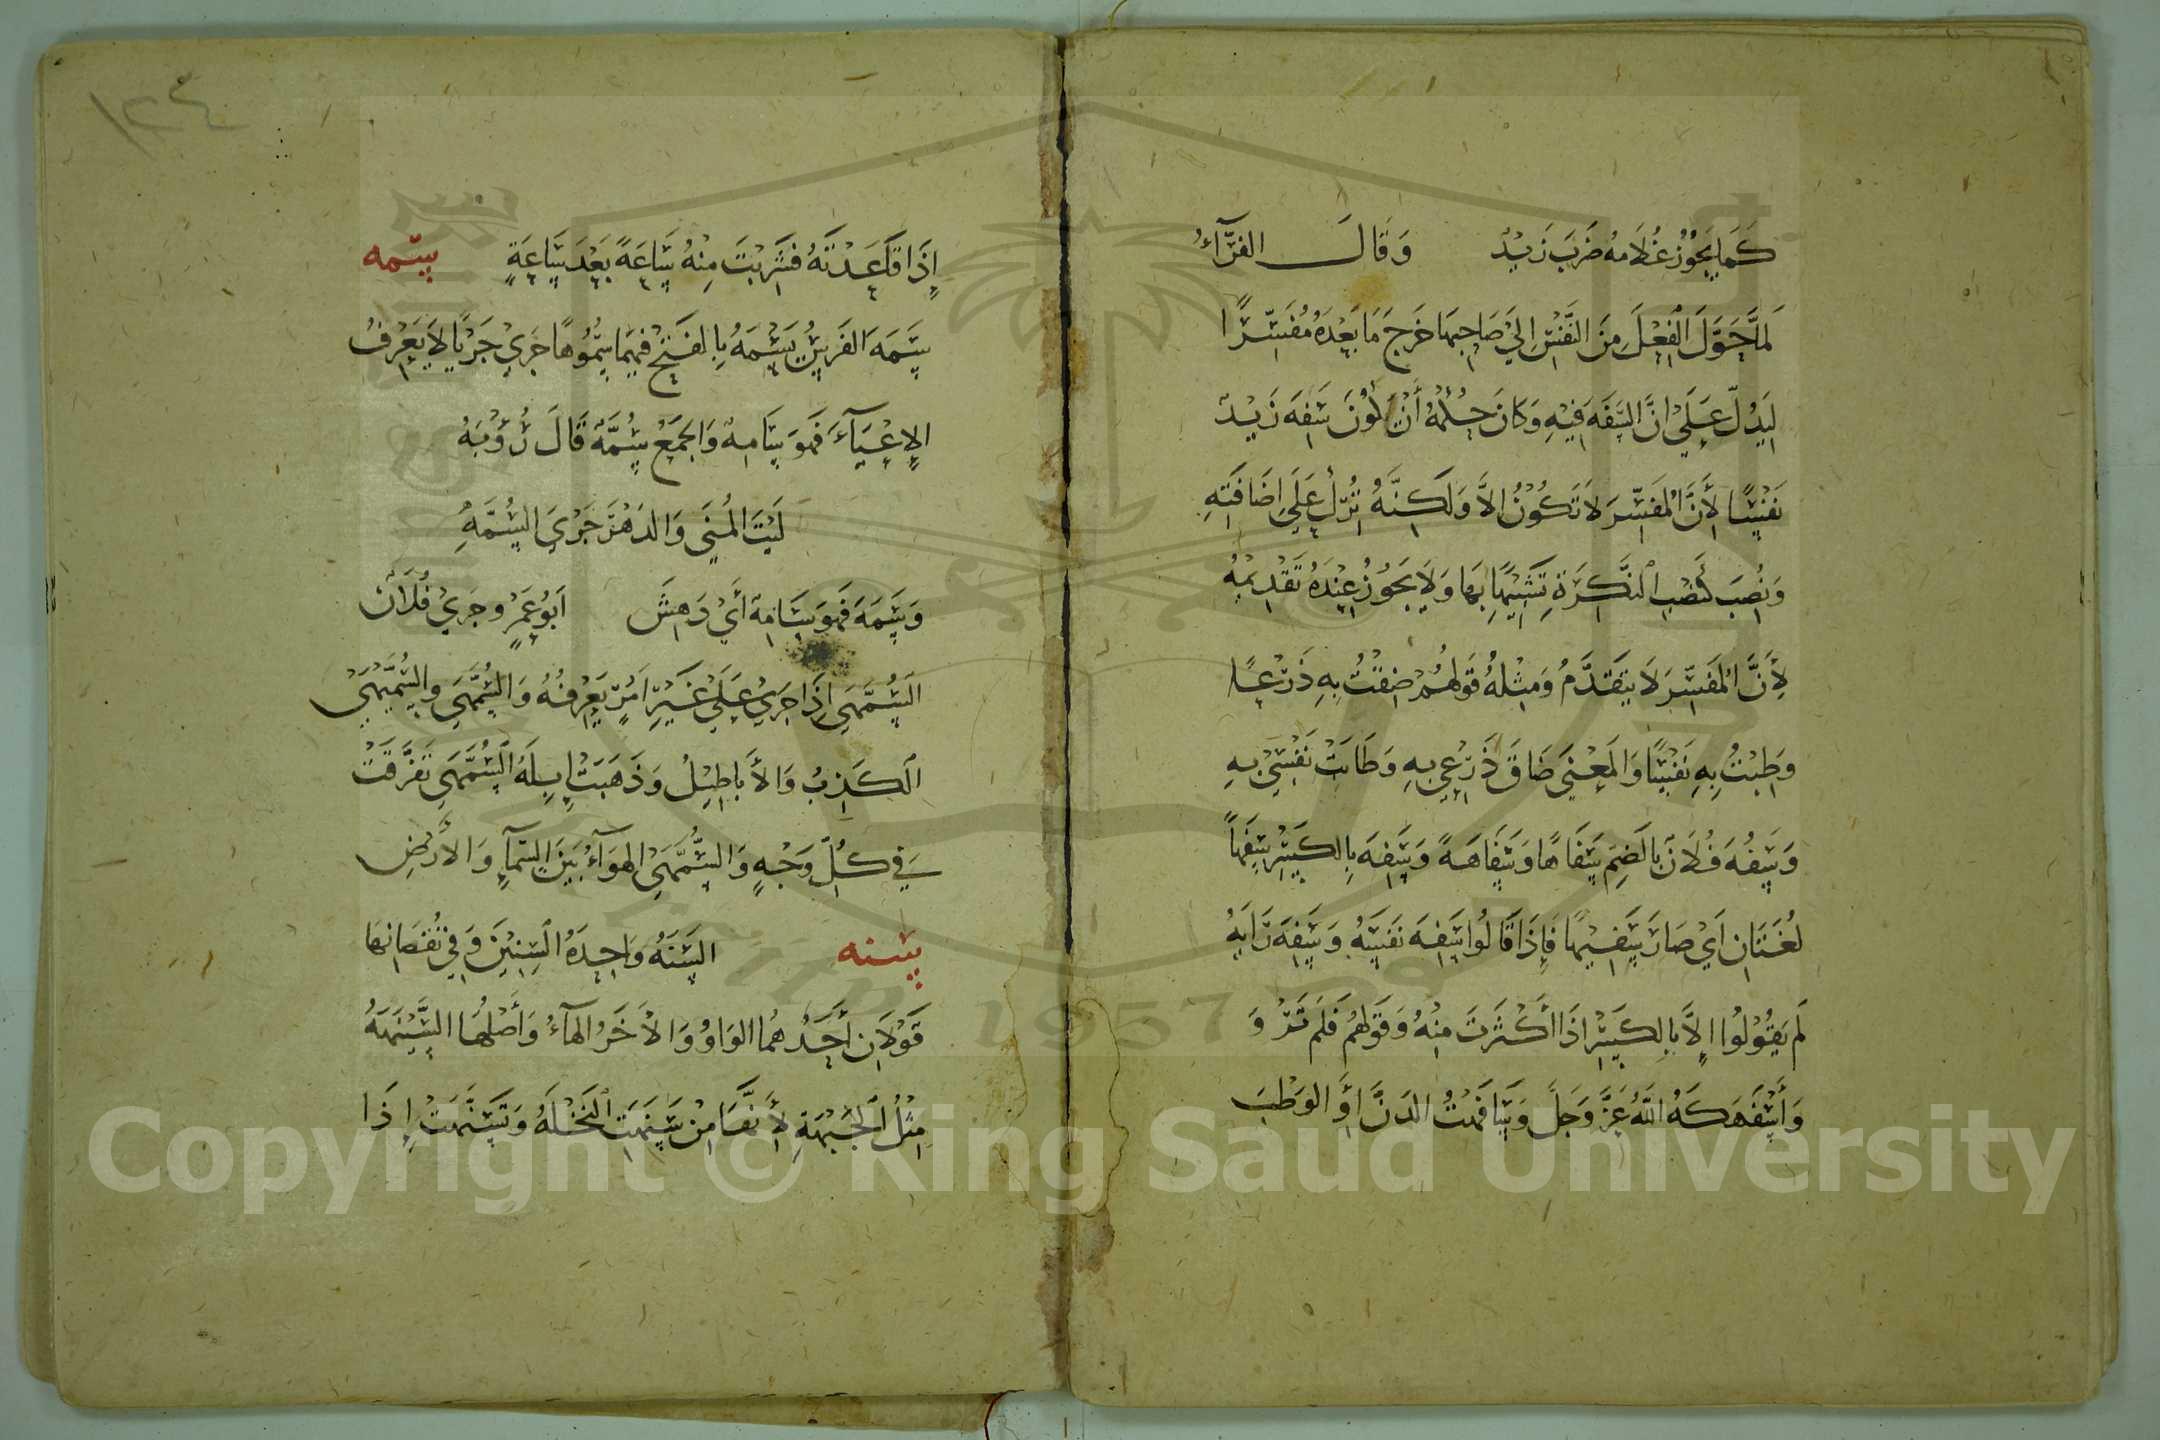 كَمَا يَجُوزُ غُلَامَهُ ضَرَبَ زَيْدٌ وَقَالَ الفَرَّآءُ
لَمَّا حَوَّلَ الفِعْلَ مِنَ النَّفْسِ اِلَيْ صَاحِبِهَا خَرَجَ مَا بَعْدَهُ مُفَسِّرًا
لِيَدُلَّ عَلَيْ اَنَّ السَّفَهَ فِيْهِ وَكَانَ حُكْمُهُ أَنْ يَكُوْنَ سَفِهَ زَيْدٌ
نَفْسًا لِأَنَّ المُفَسِّرَ لَا تَكُوْنُ الاَّ وَلَكِنَّهُ تُرِكَ عَلَي اِضَافَتِهِ
وَنُصِبَ كَنَصْبِ النَّكِرَةِ تَشْبِيْهًا بِهَا وَلَا يَجُوْزُ عِنْدَهُ تَقْدِيْمُهُ
لِأَنَّ المُفَسِّرَ لَا يَتَقَدَّمُ وَمِثْلُهُ قَوْلُهُمْ ضِقْتُ بِهِ ذَرْعًا
وَطِبْتُ بِهِ نَفْسًا وَالمَعْنَي ضَاقَ ذَرْعِي بِهِ وَطَابَتْ نَفْسِيْ بِهِ
وَسَفُهَ فُلَانٌ بِالضَمِّ سَفَاهًا وَسَفَاهَةً وَسَفِهَ بِالكَسْرِ سَفَهًا
لُغَتَانِ اَيْ صَارَ سَفِيْهًا فَاِذَا قَالُوا سَفِهَ نَفْسَهُ وَسَفِهَ رَايَهُ
لَمْ يَقُوْلُوا اِلاَّ بِالكَسْرِ اِذَا اَكْثَرَتَ مِنْهُ وَقَوْلُهُمْ فَلَمْ تَرْوَ
وَأَسْفَهَكَهُ اللّٰهُ عَزَّ وَجَلَّ وَسَافَهْتُ الدَنَّ اَوْ الوَطْبَ
١٢٤
اِذَا قَاعَدْتَهُ فَشَرِبْتَ مِنْهُ سَاعَةً بَعْدَ سَاعَةٍ سمه
سَمَهَ الفَرَسُ يَسْمَهُ بِالفَتْحِ فِيْهِمَا سُمُوْهًا جَرَيْ جَرْيًا لَا يَعْرِفُ
الاِعْيَآءَ فَهُوَ سَامِهٌ وَالجَمْعُ سُمَّهٌ قَالَ رُؤْبَهُ
لَيْتَ المُنَي وَالدَهْرَ جَرْيَ السُّمَّهِ
وَسَمَهَ فَهُوَ سَامِهٌ أَيْ دَهِشَ اَبُوعَمْرٍو جَرَيْ فُلَانٌ
السُّمَّهَي اِذَا جَرَيْ عَلَيْ غَيْرِ اَمْرٍ يَعْرِفُهُ وَالسُّمَّهَي وَالسُّمَّيْهَيْ
الكَذِبُ وَالأَبَاطِيْلُ وَذَهَبَتْ اِبِلُهُ السُّمَّهَي تَفَرَّقَتْ
فِي كُلِّ وَجْهٍ وَالسُّمَّهَيْ الهَوَآءُ بَيْنَ السَّمَآءِ وَالأَرْضِ
سنه السَّنَهُ وَاحِدَةُ السِّنِيْنَ وَفِي نُقْصَانِهَا
قَوْلَانِ أَحَدُهُمَا الوَاوُ وَالأَخَرُ الهَآءُ وَأَصْلُهَا السَّنْهَهُ
مِثْلُ الجَبْهَةِ لِأَنَّهَا مِنْ سَنَهَتِ النَخْلَهُ وَتَسَنَّهَتْ إِذَا
Copyright © King Saud University
1957